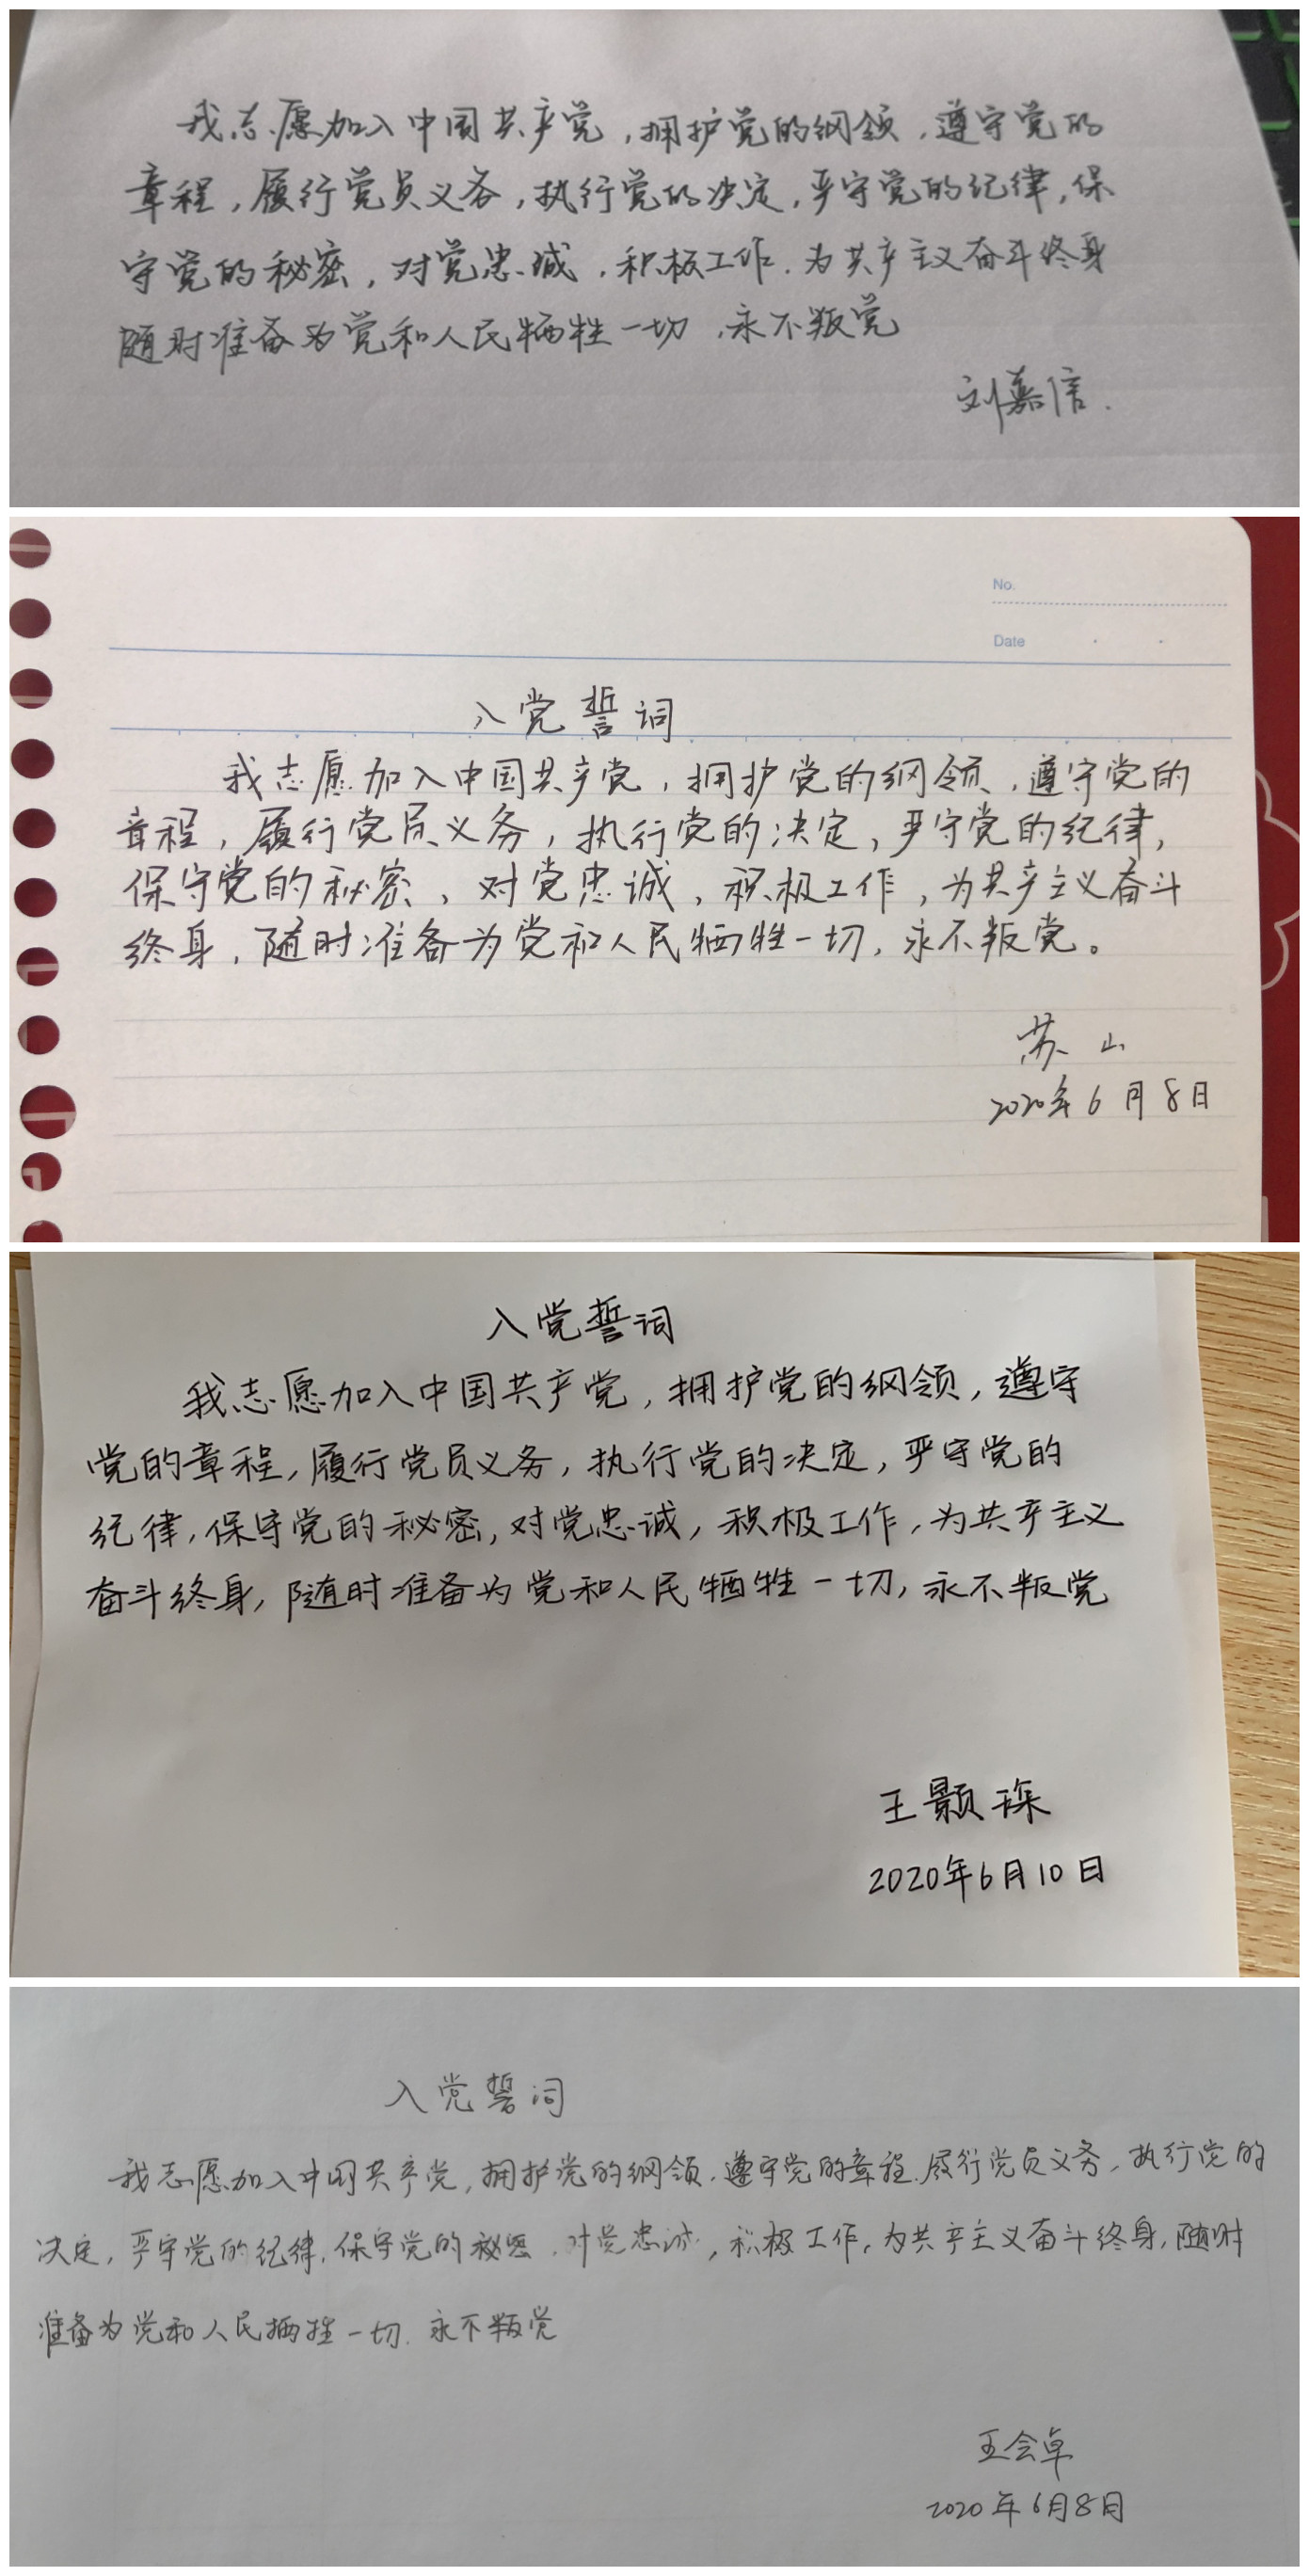 我志愿加入中国共产党,拥护党的纲领,遵守党的
章程,履行党员义务,执行党的决定,严守党的纪律,保
守党的秘密,对党忠诚,积极工作,为共产主义奋斗终身
随时准备为党和人民牺牲一切,永不叛党
刘嘉信.
No.
Date
入党誓词
我志愿加入中国共产党,拥护党的纲领,遵守党的
章程,履行党员义务,执行党的决定,严守党的纪律,
保守党的秘密、对党忠诚,积极工作,为共产主义奋斗
终身,随时准备为党和人民牺牲一切,永不叛党。
苏山
2020年6月8日
入党誓词
我志愿加入中国共产党,拥护党的纲领,遵守
党的章程,履行党员义务,执行党的决定,严守党的
纪律,保守党的秘密,对党忠诚,积极工作,为共产主义
奋斗终身,随时准备为党和人民牺牲一切,永不叛党
王颢琛
2020年6月10日
入党誓词
我志愿加入中国共产党,拥护党的纲领,遵守党的章程,履行党员义务,执行党的
决定,严守党的纪律,保守党的秘密,对党忠诚,积极工作,为共产主义奋斗终身,随时
准备为党和人民牺牲一切.永不叛党
王会卓
2020年6月8日